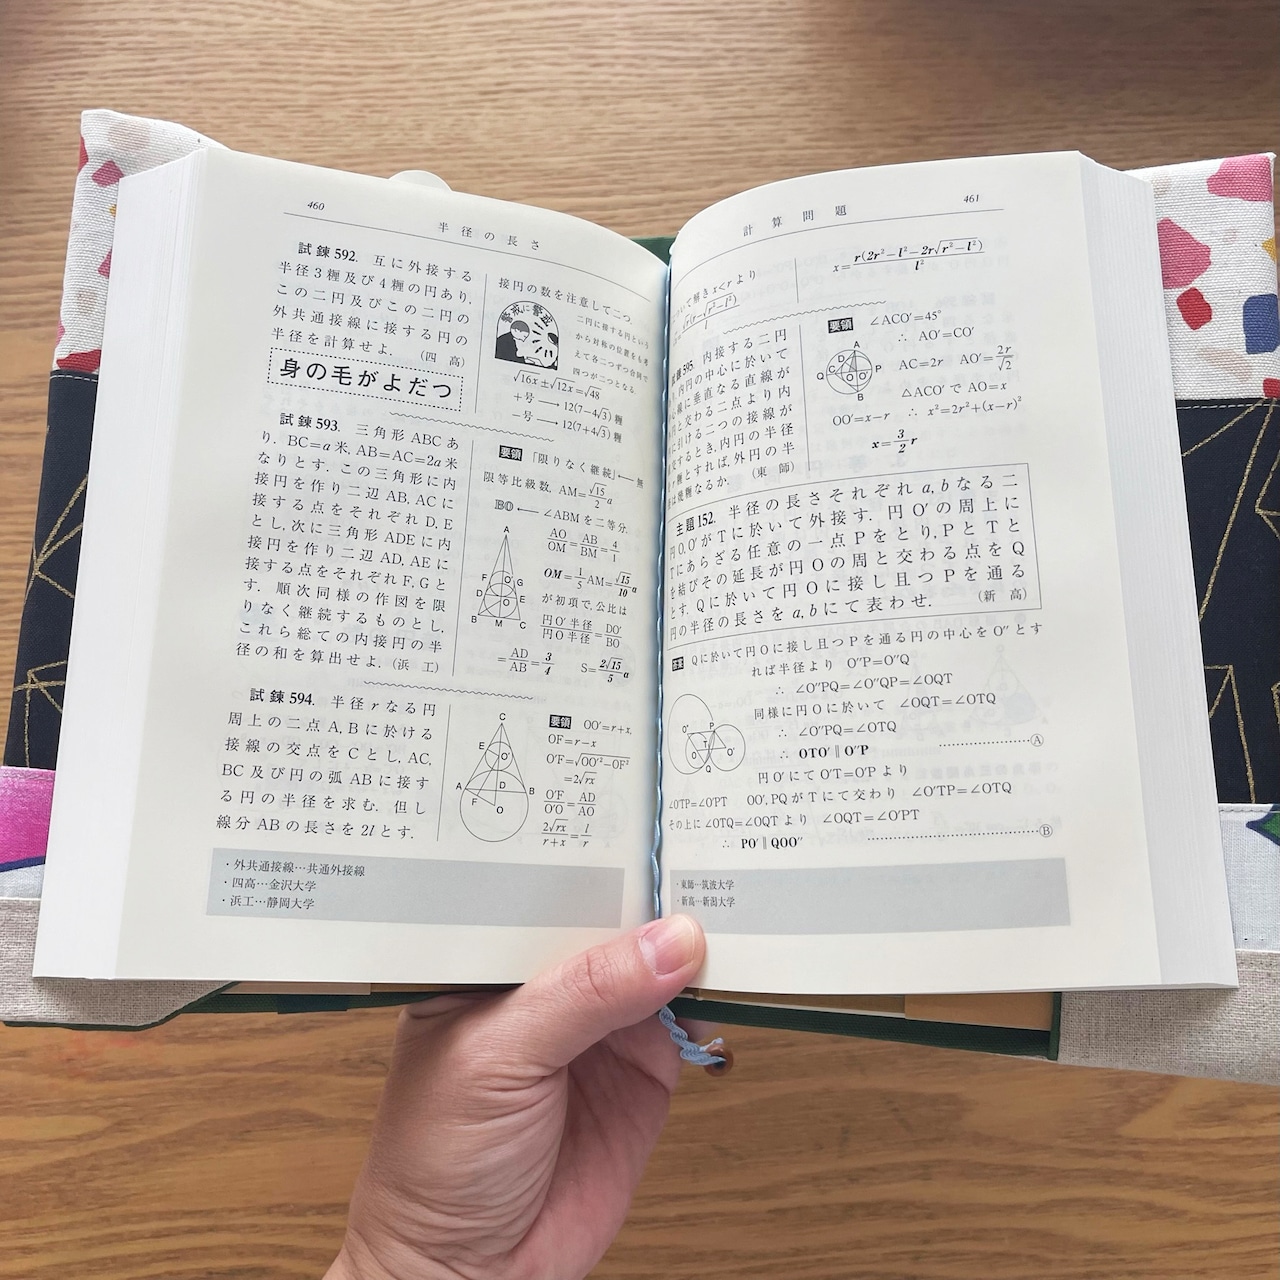 460
半径の長さ
試錬592. 互に外接する
半径3糎及び4糎の円あり,
この二円及びこの二円の
外共通接線に接する円の
半径を計算せよ. (四 高)
身の毛がよだつ
接円の数を注意して二つ.
警戒に警戒
二円に接する円という
から対称の位置をも考
えて各二つずつ合同で
四つが二つとなる.
√16x ± √12x = √48
+号 → 12(7−4√3) 糎
−号 → 12(7+4√3) 糎
試錬593. 三角形 ABC あ
り. BC=a 米, AB=AC=2a 米
なりとす. この三角形に内
接円を作り二辺 AB, AC に
接する点をそれぞれ D, E
とし, 次に三角形 ADE に内
接円を作り二辺 AD, AE に
接する点をそれぞれ F, G と
す. 順次同様の作図を限
りなく継続するものとし,
これら総ての内接円の半
径の和を算出せよ. (浜 工)
要領 「限りなく継続」← 無
限等比級数, AM=√15/2 a
BO ← ∠ABM を二等分.
AO/OM = AB/BM = 4/1
OM = 1/5 AM = √15/10 a
が初項で, 公比は
円O′半径/円O半径 = DO′/BO
= AD/AB = 3/4 S = 2√15/5 a
A
F O′ G
D E
O
B M C
試錬594. 半径 r なる円
周上の二点 A, B に於ける
接線の交点を C とし, AC,
BC 及び円の弧 AB に接す
る円の半径を求む. 但し
線分 AB の長さを 2l とす.
C
E O′
A D B
F O
要領 OO′=r+x,
OF=r−x
O′F=√OO′²−OF²
=2√rx
O′F/O′O = AD/AO
2√rx/r+x = l/r
・外共通接線…共通外接線
・四高…金沢大学
・浜工…静岡大学
461
計算問題
いて解き x<r より
x = r(2r²−l²−2r√r²−l²)/l²
試錬595. 内接する二円
内円の中心に於いて
心線に垂直なる直線が
円と交わる二点より内
に引ける二つの接線が
交するとき, 内円の半径
r 糎とすれば, 外円の半
は幾糎なるか. (東 師)
要領 ∠ACO′=45°
∴ AO′=CO′
AC=2r AO′=2r/√2
△ACO′ で AO=x
OO′=x−r ∴ x²=2r²+(x−r)²
x = 3/2 r
A
C D
Q O O′ P
B
主題152. 半径の長さそれぞれ a, b なる二
円 O, O′ が T に於いて外接す. 円 O′ の周上に
T にあらざる任意の一点 P をとり, P と T と
を結びその延長が円 O の周と交わる点を Q
とす. Q に於いて円 O に接し且つ P を通る
円の半径の長さを a, b にて表わせ. (新 高)
答案 Q に於いて円 O に接し且つ P を通る円の中心を O″ とす
れば半径より O″P=O″Q
∴ ∠O″PQ=∠O″QP=∠OQT
同様に円 O に於いて ∠OQT=∠OTQ
∴ ∠O″PQ=∠OTQ
∴ OTO′ ∥ O″P …………………Ⓐ
円 O′ にて O′T=O′P より
∠O′TP=∠O′PT OO′, PQ が T にて交わり ∠O′TP=∠OTQ
その上に ∠OTQ=∠OQT より ∠OQT=∠O′PT
∴ PO′ ∥ QOO″ …………………Ⓑ
O″ P
O T O′
Q
・東師…筑波大学
・新高…新潟大学